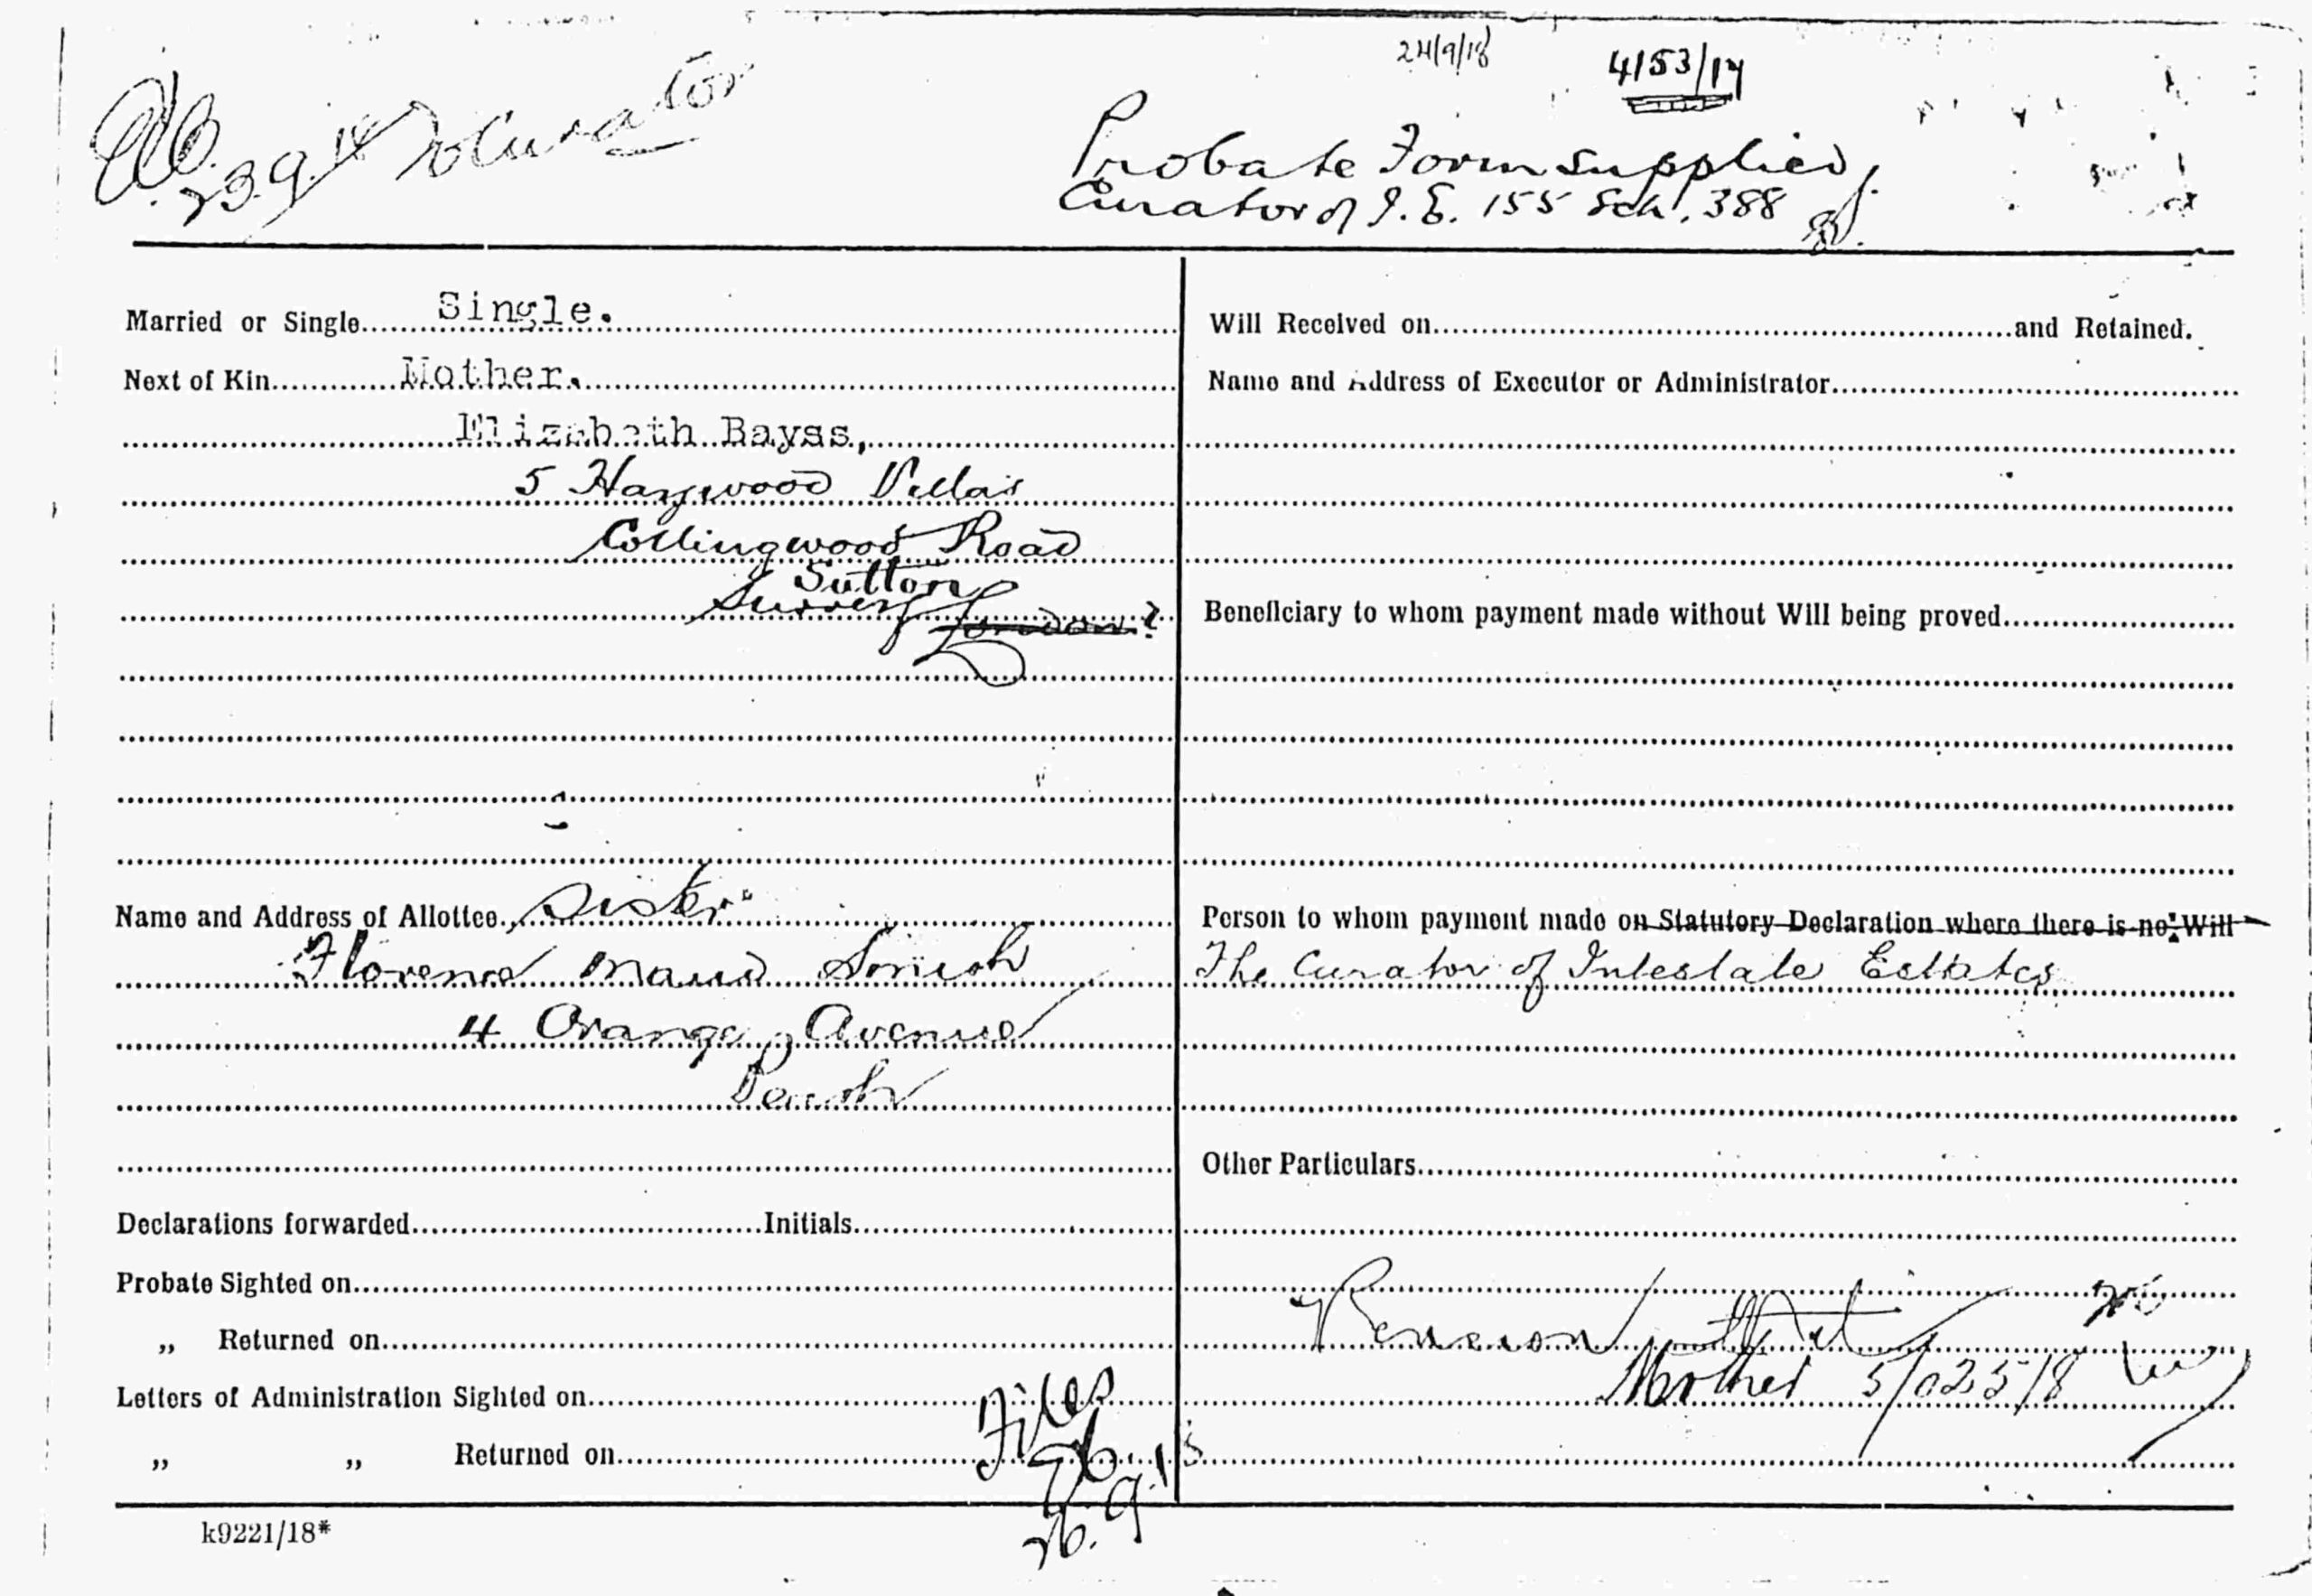 24/9/18
4153/17
23.9.18 to Curator
Probate Form supplied
Curator of I.E. 155 Sch. 388
Married or Single Single.
Next of Kin Mother.
Elizabeth Bayss,
5 Haygwood Villas
Collingwood Road
Sutton
Surrey London?
Name and Address of Allottee Sister
Florence Maud Smith
4 Orange Avenue
Perth
Declarations forwarded Initials
Probate Sighted on
„ Returned on
Letters of Administration Sighted on
„ „ Returned on
Files
26.9.18
Will Received on and Retained.
Name and Address of Executor or Administrator
Beneficiary to whom payment made without Will being proved
Person to whom payment made on Statutory Declaration where there is no Will
The Curator of Intestate Estates
Other Particulars
Pension
Mother 5/02518
k9221/18*